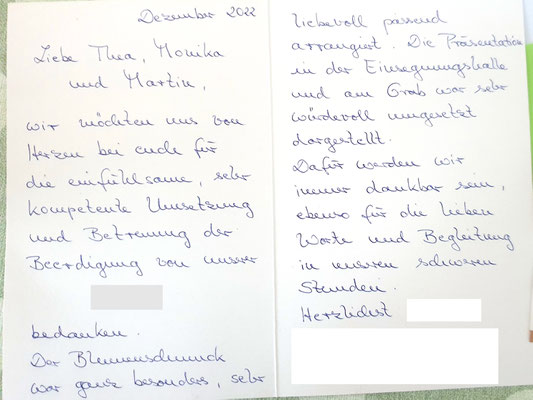 Dezember 2022
Liebe Thea, Monika
und Martin,
wir möchten uns von
Herzen bei euch für
die einfühlsame, sehr
kompetente Umsetzung
und Betreuung der
Beerdigung von unserer
bedanken.
Der Blumenschmuck
war ganz besonders, sehr
liebevoll passend
arrangiert. Die Präsentation
in der Einsegnungshalle
und am Grab war sehr
würdevoll umgesetzt
dargestellt.
Dafür werden wir
immer dankbar sein,
ebenso für die lieben
Worte und Begleitung
in unseren schweren
Stunden.
Herzlichst